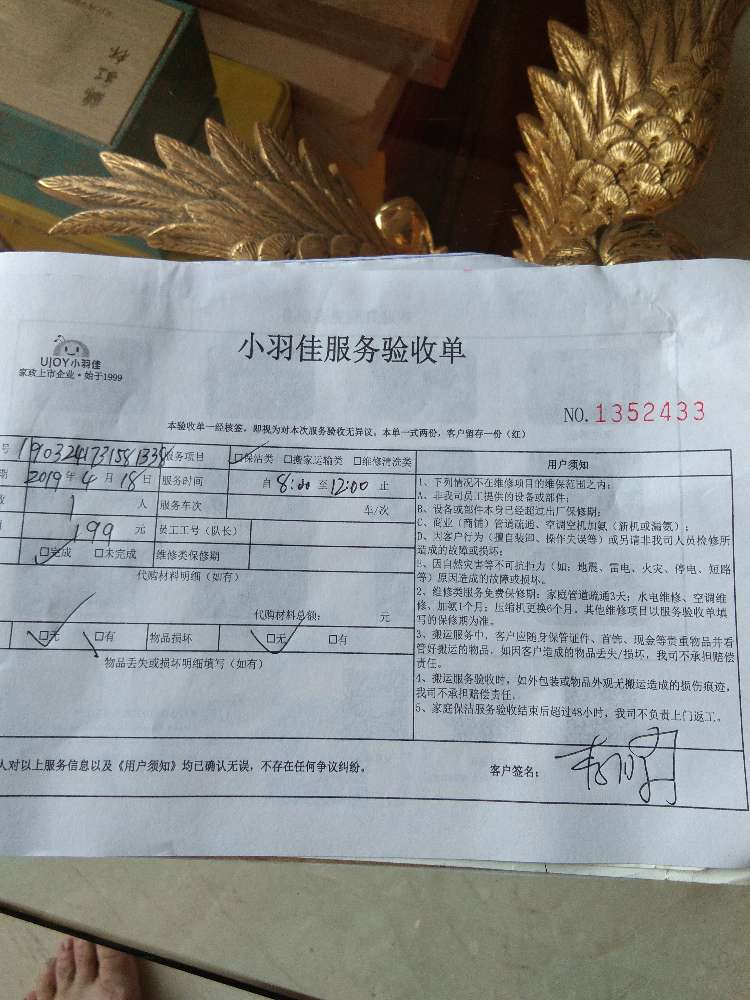 小羽佳服务验收单
UJOY小羽佳
家政上市企业·始于1999
NO.1352433
本验收单一经核签，即视为对本次服务验收无异议。本单一式两份，客户留存一份（红）
号 1903241731581338 服务项目 □保洁类 □搬家运输类 □维修清洗类
期 2019年4月18日 服务时间 自 8:00 至 12:00 止
1 人 服务车次 车/次
199 元 员工工号（队长）
□完成 □未完成 维修类保修期
代购材料明细（如有）
代购材料总额： 元
□无 □有 物品损坏 □无 □有
物品丢失或损坏明细填写（如有）
用户须知
1、下列情况不在维修项目的维保范围之内：
A、非我司员工提供的设备或部件；
B、设备或部件本身已经超过出厂保修期；
C、商业（商铺）管道疏通、空调空机加氨（新机或漏氨）；
D、因客户行为（擅自装卸、操作失误等）或另请非我司人员检修所
造成的故障或损坏；
E、因自然灾害等不可抗拒力（如：地震、雷电、火灾、停电、短路
等）原因造成的故障或损坏。
2、维修类服务免费保修期：家庭管道疏通3天；水电维修、空调维
修、加氨1个月；压缩机更换6个月。其他维修项目以服务验收单填
写的保修期为准。
3、搬运服务中，客户应随身保管证件、首饰、现金等贵重物品并看
管好搬运的物品，如因客户造成的物品丢失/损坏，我司不承担赔偿
责任。
4、搬运服务验收时，如外包装或物品外观无搬运造成的损伤痕迹，
我司不承担赔偿责任。
5、家庭保洁服务验收结束后超过48小时，我司不负责上门返工。
人对以上服务信息以及《用户须知》均已确认无误，不存在任何争议纠纷。
客户签名：